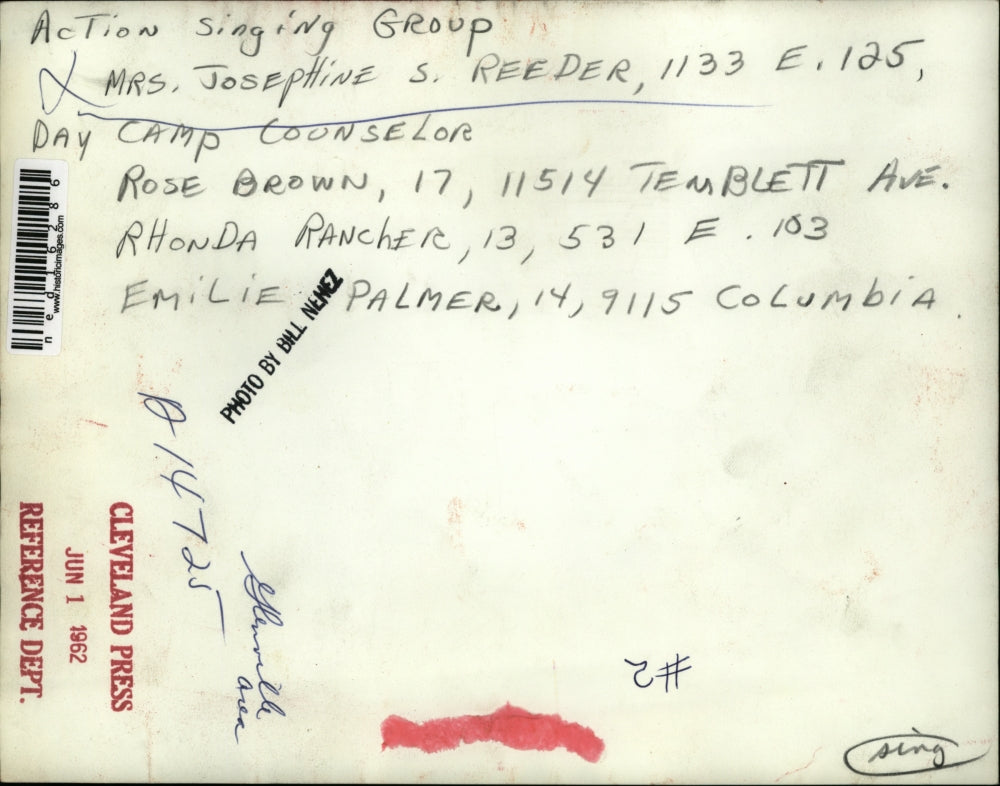 Action Singing Group
MRS. JOSEPHINE S. REEDER, 1133 E. 125,
DAY CAMP COUNSELOR
ROSE BROWN, 17, 11514 TEMBLETT AVE.
RHONDA RANCHER, 13, 531 E. 103
EMILIE PALMER, 14, 9115 COLUMBIA.
ned162886
www.historicimages.com
PHOTO BY BILL NEMEZ
A 14725
Glenville
area
CLEVELAND PRESS
JUN 1 1962
REFERENCE DEPT.
#2
sing